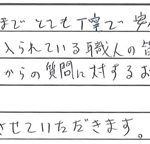 まで とても丁寧で
入られている職人の
からの質問に対するお
させていただきます。